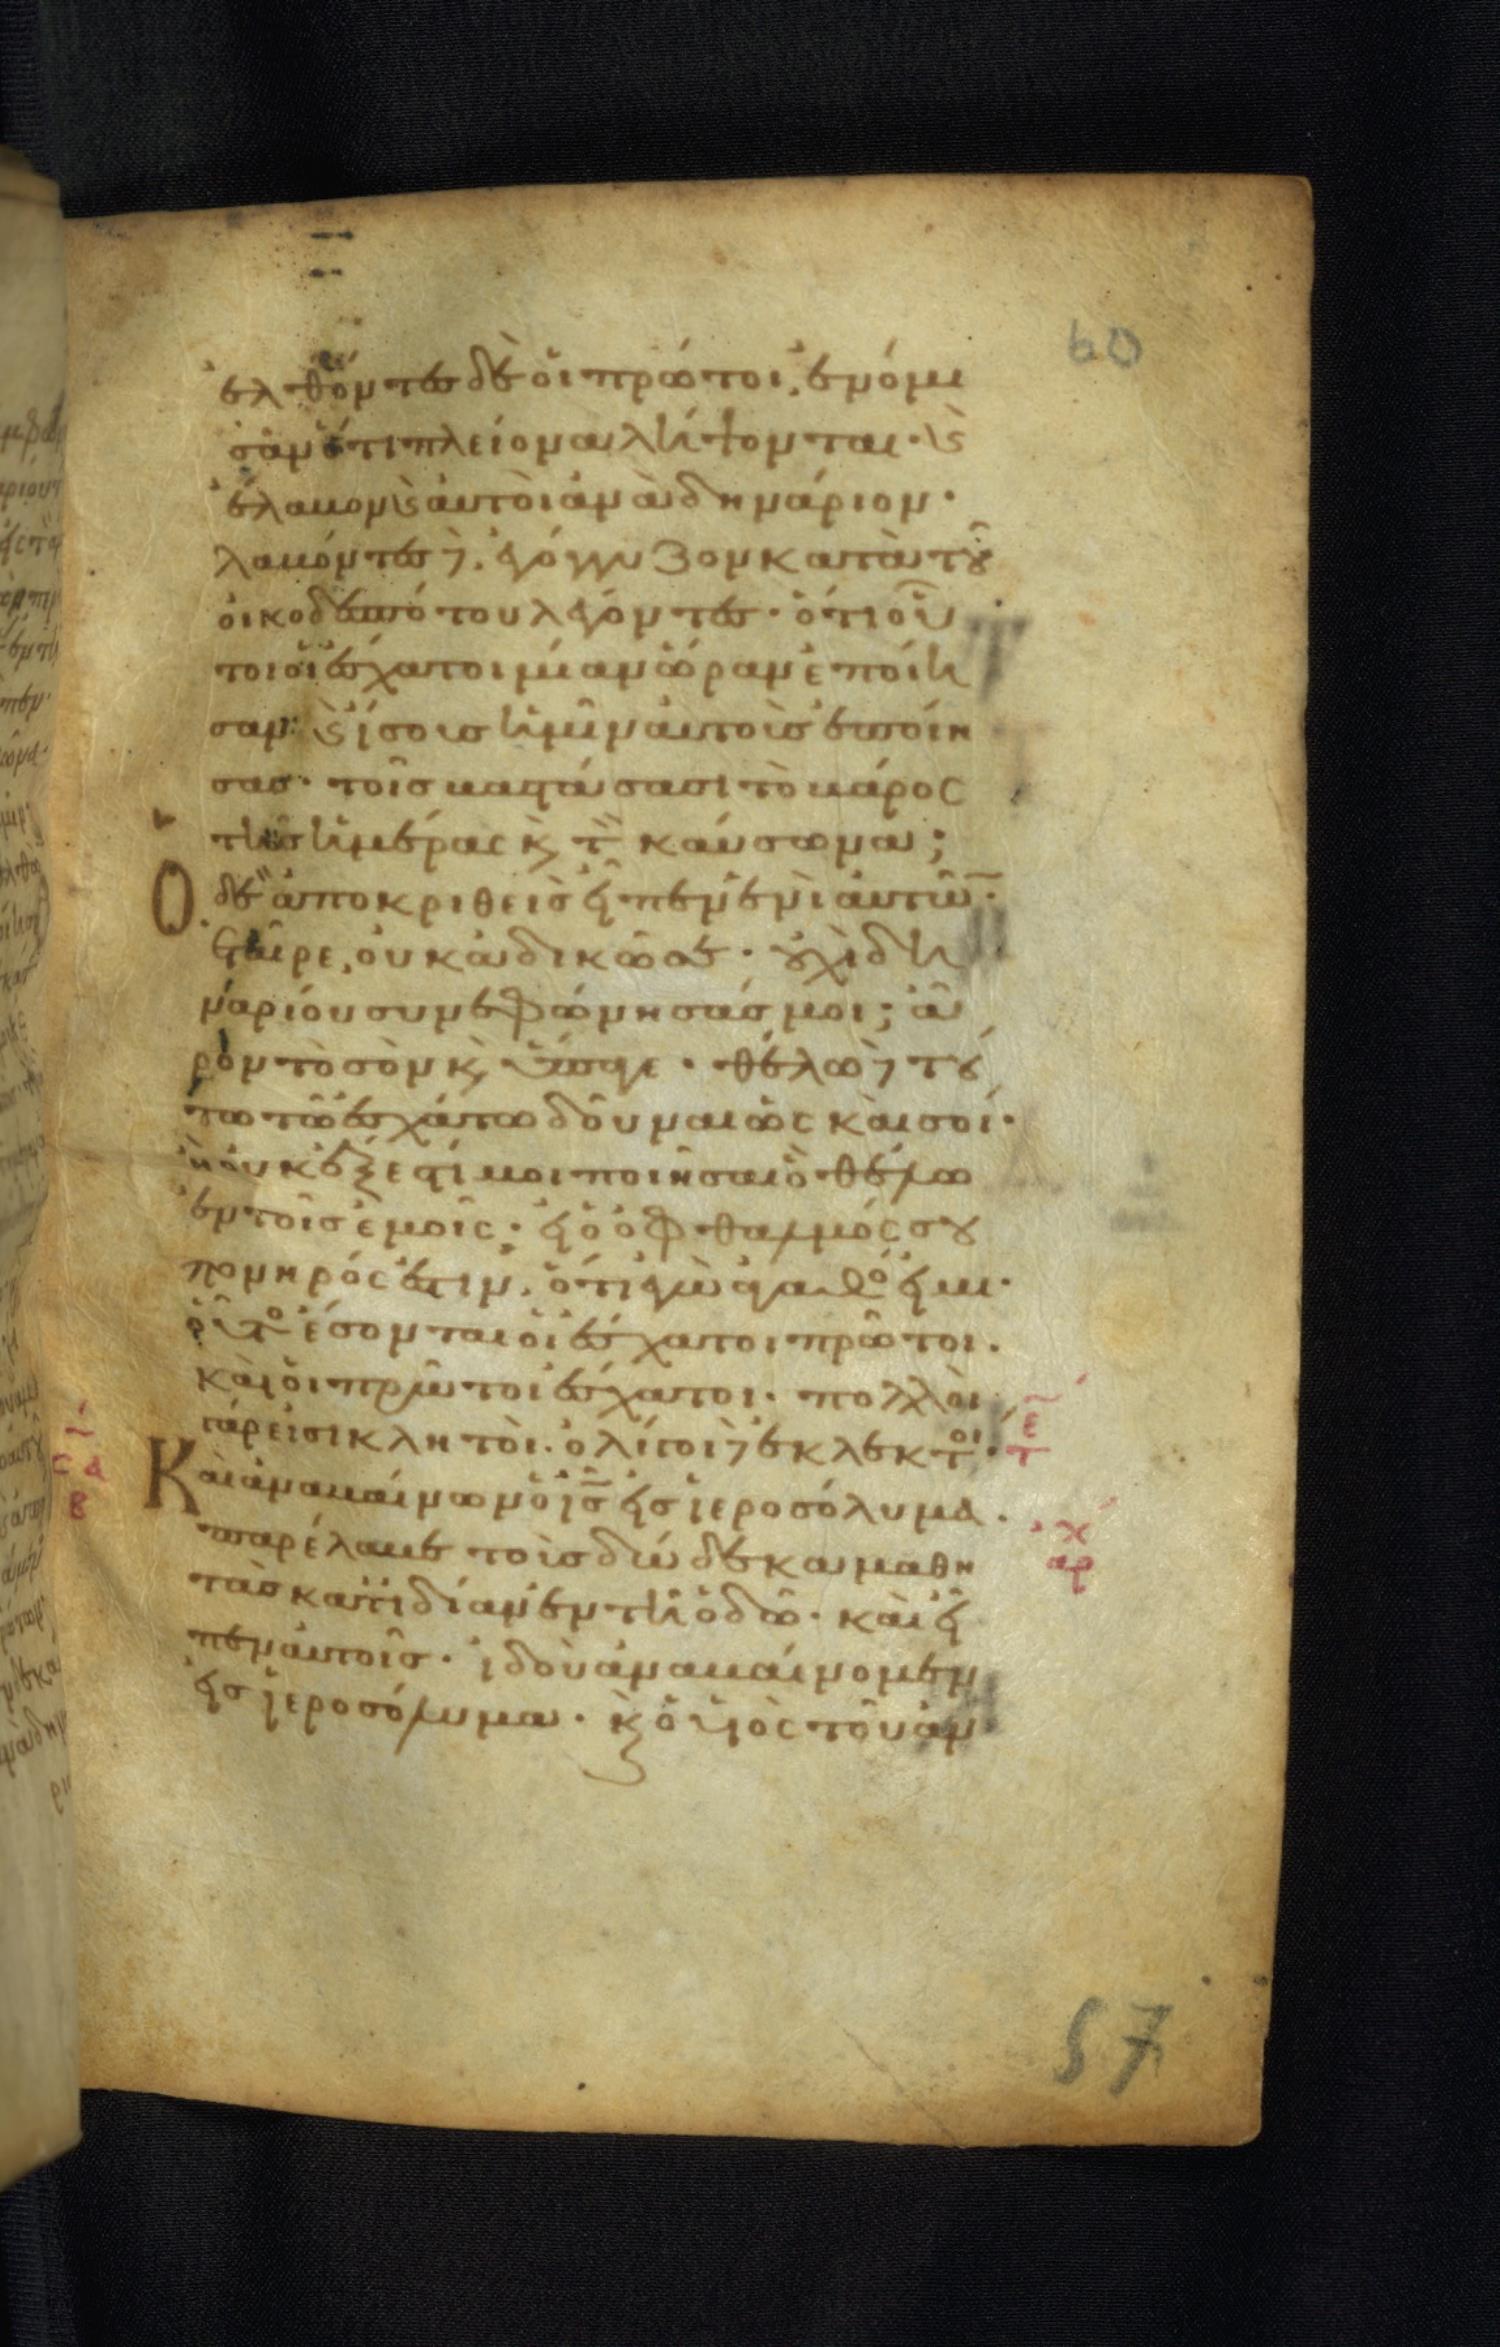 60
ἐλθόντες δὲ οἱ πρῶτοι, ἐνόμι
σαν ὅτι πλείονα λήψονται· ϗ
ἔλαβον ϗ αὐτοὶ ἀνὰ δηνάριον·
λαβόντες δὲ, ἐγόγγυζον κατὰ τοῦ
οἰκοδεσπότου λέγοντες· ὅτι οὗ
τοι οἱ ἔσχατοι μίαν ὥραν ἐποίη
σαν· ϗ ἴσους ἡμῖν αὐτοὺς ἐποίη
σας· τοῖς βαστάσασι τὸ βάρος
τῆς ἡμέρας ϗ τὸν καύσωνα;
Ὁ δὲ ἀποκριθεὶς εἶπεν ἑνὶ αὐτῶν·
ἑταῖρε, οὐκ ἀδικῶ σε· οὐχὶ δη
ναρίου συνεφώνησάς μοι; ἆ
ρον τὸ σὸν ϗ ὕπαγε· θέλω δὲ τού
τω τῶ ἐσχάτω δοῦναι ὡς καὶ σοί·
ἢ οὐκ ἔξεστί μοι ποιῆσαι ὃ θέλω
ἐν τοῖς ἐμοῖς· εἰ ὁ ὀφθαλμός σου
πονηρός ἐστιν, ὅτι ἐγὼ ἀγαθός εἰμι·
οὕτως ἔσονται οἱ ἔσχατοι πρῶτοι.
καὶ οἱ πρῶτοι ἔσχατοι· πολλοὶ
γάρ εἰσι κλητοὶ· ὀλίγοι δὲ ἐκλεκτοί·
Καὶ ἀναβαίνων ὁ ι̅ς̅ εἰς ἱεροσόλυμα.
παρέλαβε τοὺς δώδεκα μαθη
τὰς κατ' ἰδίαν ἐν τῆ ὁδῶ· καὶ εἶ
πεν αὐτοῖς· ἰδοὺ ἀναβαίνομεν
εἰς ἱεροσόλυμα· ϗ ὁ υἱὸς τοῦ ἀν
57